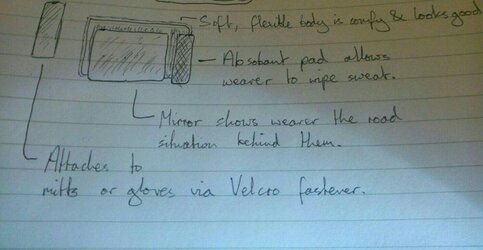 Soft, flexible body is comfy & looks good
Absobant pad allows
wearer to wipe sweat.
Mirror shows wearer the road
situation behind them.
Attaches to
mitts or gloves via Velcro fastener.